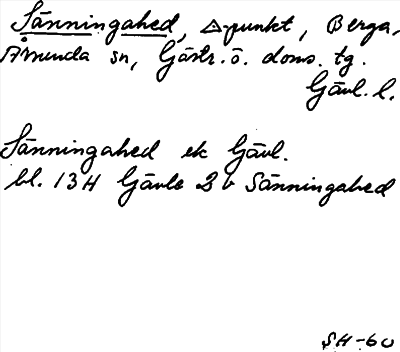 Sänningahed, Δ-punkt, Berga,
Åmunda sn, Gästr. ö. doms. tg.
Gävl. l.
Sänningahed ek Gävl.
bl. 13H Gävle 2 b Sänningahed
SH-60